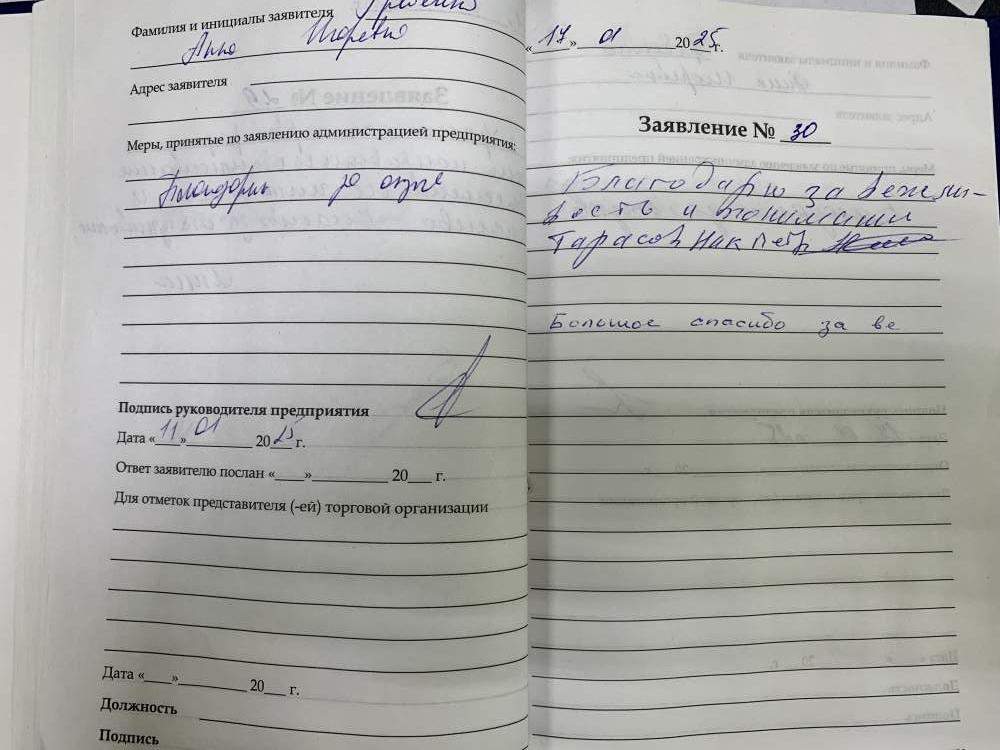 Фамилия и инициалы заявителя
Анна Игоревна
Адрес заявителя
Меры, принятые по заявлению администрацией предприятия:
Благодарим за отзыв
Подпись руководителя предприятия
Дата «11» 01 2025 г.
Ответ заявителю послан «___»__________ 20___ г.
Для отметок представителя (-ей) торговой организации
Дата «___»__________ 20___ г.
Должность
Подпись
«17» 01 2025 г.
Заявление № 30
Благодарю за вежли-
вость и понимании
Тарасов
Большое спасибо за ве